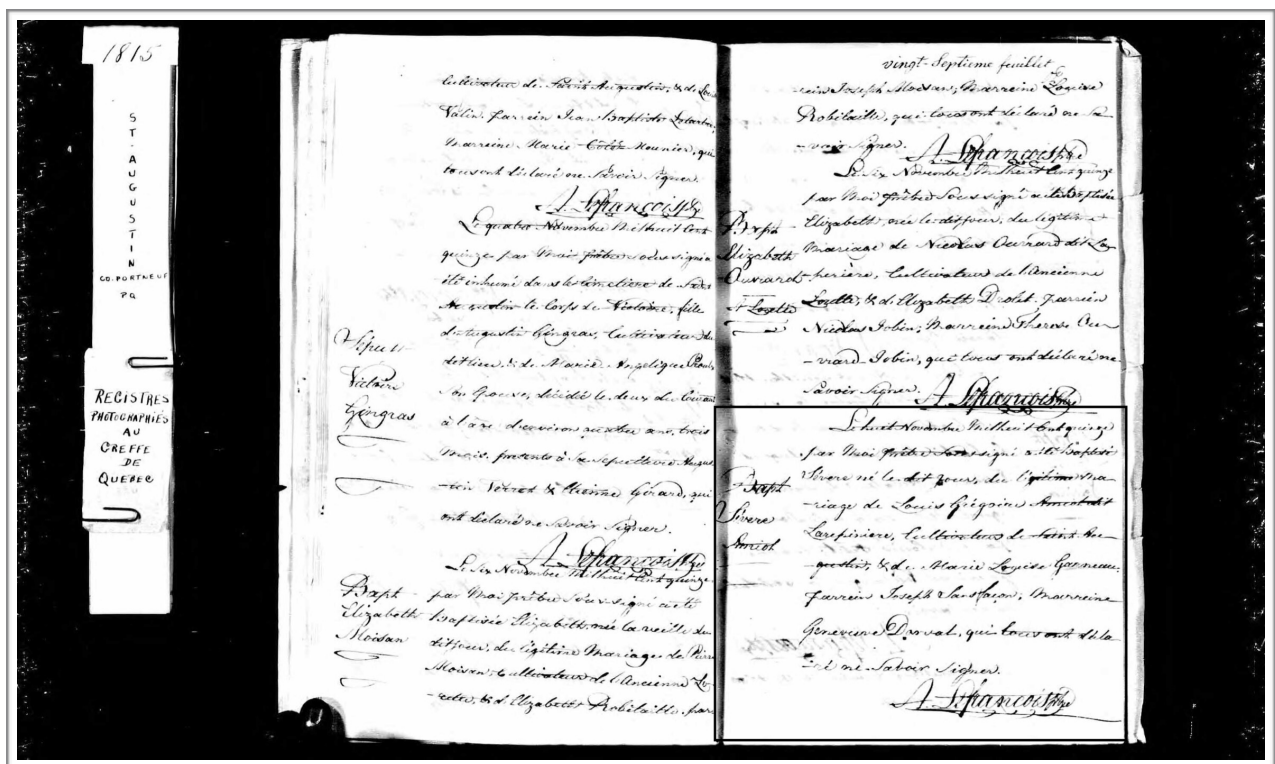 1815
ST-AUGUSTIN
CO. PORTNEUF
PQ
REGISTRES
PHOTOGRAPHIÉS
AU
GREFFE
DE
QUEBEC
Cultivateur de Saint Augustin, & de
Valin. Parrein Jean Baptiste
Marreine Marie Meunier, qui
tous ont déclaré ne Savoir Signer.
A. Lefrançois Ptre
Le quatre Novembre Mil huit Cent
quinze par Moi prêtre Sous-signé a
été inhumé dans le Cimetiere de Saint
Augustin le Corps de Victoire, fille
d'augustin Gingras, Cultivateur du
dit lieu & de Marie Angelique
Son Epouse, décédé le deux du Courant
à l'âge d'environ quatre ans, trois
Mois. presents à Sa Sepulture Augus-
-tin Verret & Etienne Gérard, qui
ont déclaré ne Savoir Signer.
A. Lefrançois Ptre
Sépult
Victoire
Gingras
Le Six Novembre Mil huit Cent quinze
par Moi prêtre Sous-signé a été
Baptisée Elizabeth, née la veille du
dit jour, du légitime Mariage de Pierre
Moisan, Cultivateur de l'Ancienne Lo-
-rette, & d'Elizabeth Robitaille. par-
Bapt
Elizabeth
Moisan
vingt-Septieme feuillet
-rein Joseph Moisan; Marreine Louise
Robitaille, qui tous ont déclaré ne Sa-
-voir Signer.
A. Lefrançois Ptre
Le Six Novembre Mil huit Cent quinze
par Moi prêtre Sous signé a été Baptisée
Elizabeth, née le dit jour, du légitime
Mariage de Nicolas Ouvrard dit La-
-perière, Cultivateur de l'Ancienne
Lorette, & de Elizabeth Drolet. parrein
Nicolas Jobin; Marreine Therese Ou-
-vrard Jobin, qui tous ont déclaré ne
Savoir Signer.
A. Lefrançois Ptre
Bapt
Elizabeth
Ouvrard
Lorette
Le huit Novembre Mil huit Cent quinze
par Moi Prêtre Sous signé a été Baptisé
Sévere né le dit jour, du légitime Ma-
-riage de Louis Grégoire Amiot dit
Larpiniere, Cultivateur de Saint Au-
-gustin, & de Marie Louise Ganneau.
Parrein Joseph Sansfaçon; Marreine
Genevieve Dorval, qui tous ont décla-
-ré ne Savoir Signer.
A. Lefrançois Ptre
Bapt
Sévere
Amiot